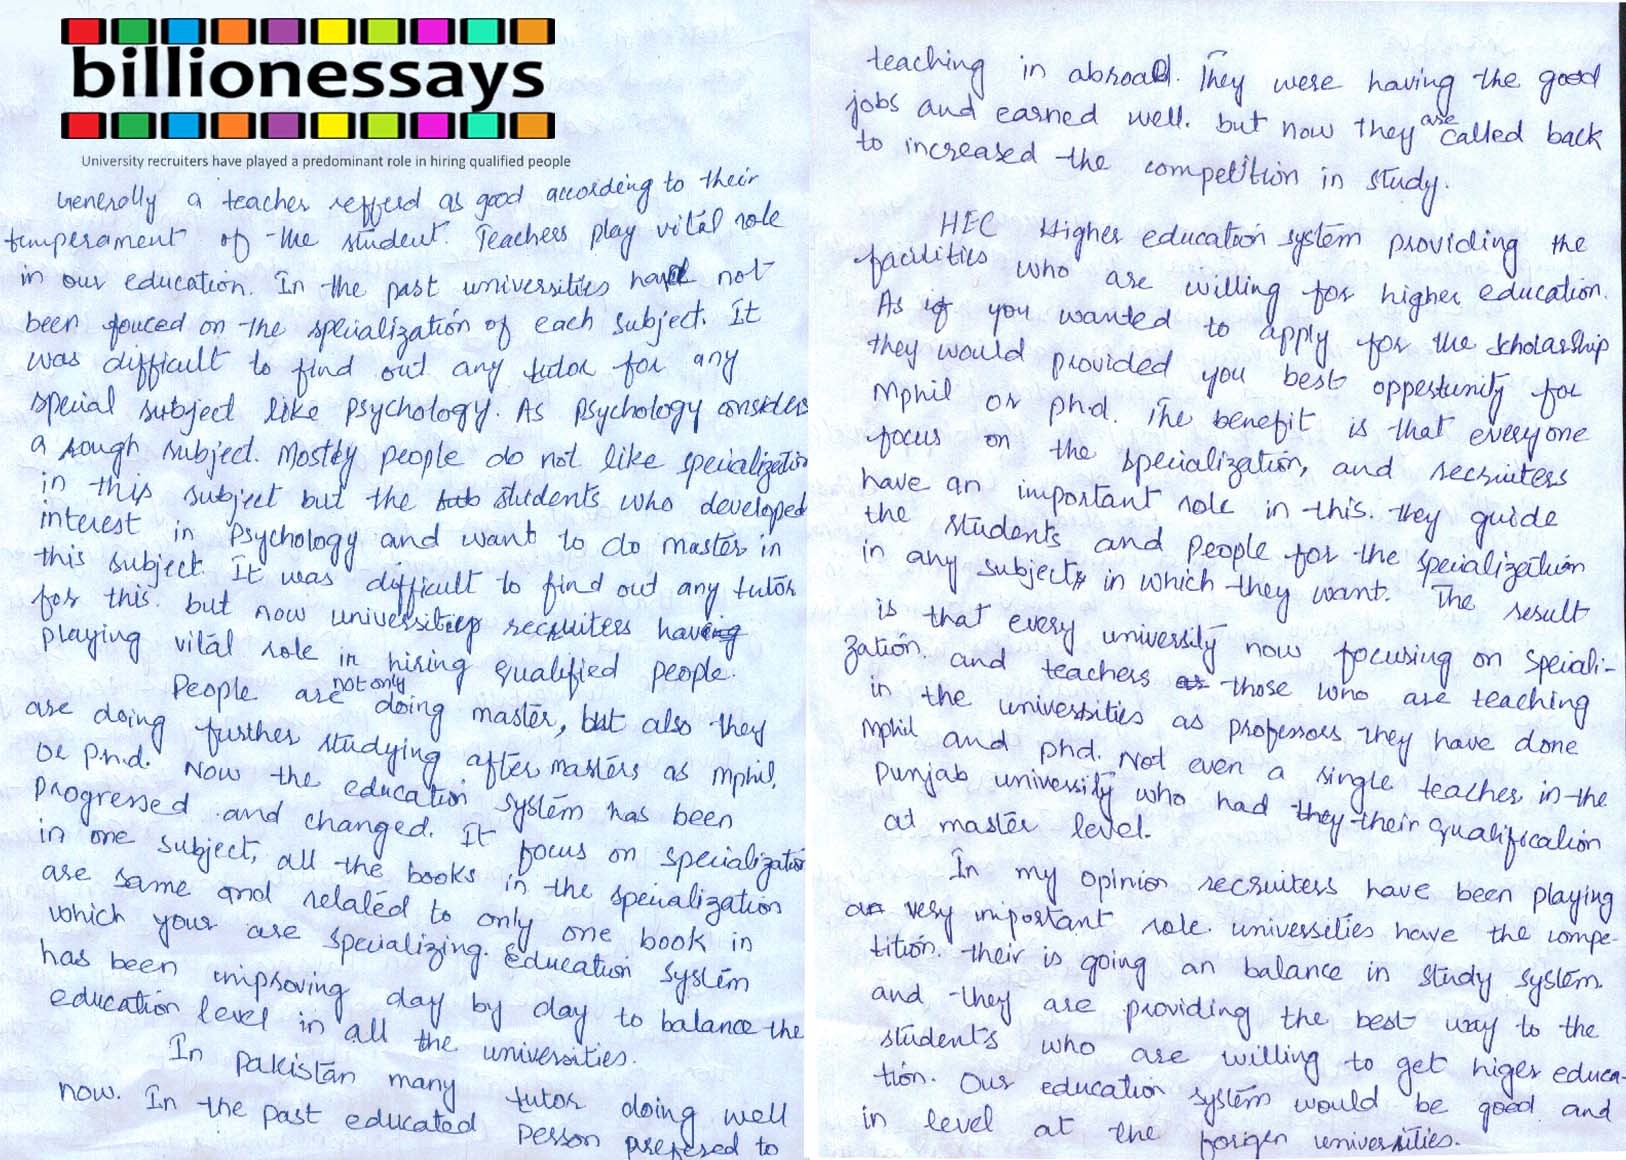 billionessays
University recruiters have played a predominant role in hiring qualified people
Generolly a teacher refferd as good according to their
temperament of the student. Teachers play vital role
in our education. In the past universities have not
been fouced on the specialization of each subject. It
was difficult to find out any tutor for any
special subject like psychology. As psychology considers
a rough subject. Mostly people do not like specialization
in this subject but the students who developed
interest in Psychology and want to do master in
this subject. It was difficult to find out any tutor
for this. but now universities recruiters have
playing vital role in hiring qualified people.
People are not only doing master, but also they
are doing further studying after masters as Mphil,
or P.h.d. Now the education system has been
progressed and changed. It focus on specialization
in one subject, all the books in the specialization
are same and related to only one book in
which your are specializing. Education system
has been improving day by day to balance the
education level in all the universities.
In Pakistan many tutor doing well
now. In the past educated person prefered to
teaching in abroad. They were having the good
jobs and earned well. but now they are called back
to increased the competition in study.
HEC Higher education system providing the
facilities who are willing for higher education.
As if you wanted to apply for the scholarship
they would provided you best oppertunity for
Mphil or ph.d. The benefit is that everyone
focus on the specialization, and recruiters
have an important role in this. they guide
the students and people for the specialization
in any subject, in which they want. The result
is that every university now focusing on speciali-
zation. and teachers those who are teaching
in the universities as professors they have done
Mphil and phd. Not even a single teacher in the
Punjab university who had they their qualification
at master level.
In my opinion recruiters have been playing
very important role. universities have the compe-
tition. their is going an balance in study system.
and they are providing the best way to the
students who are willing to get higer educa-
tion. Our education system would be good and
in level at the forigen universities.